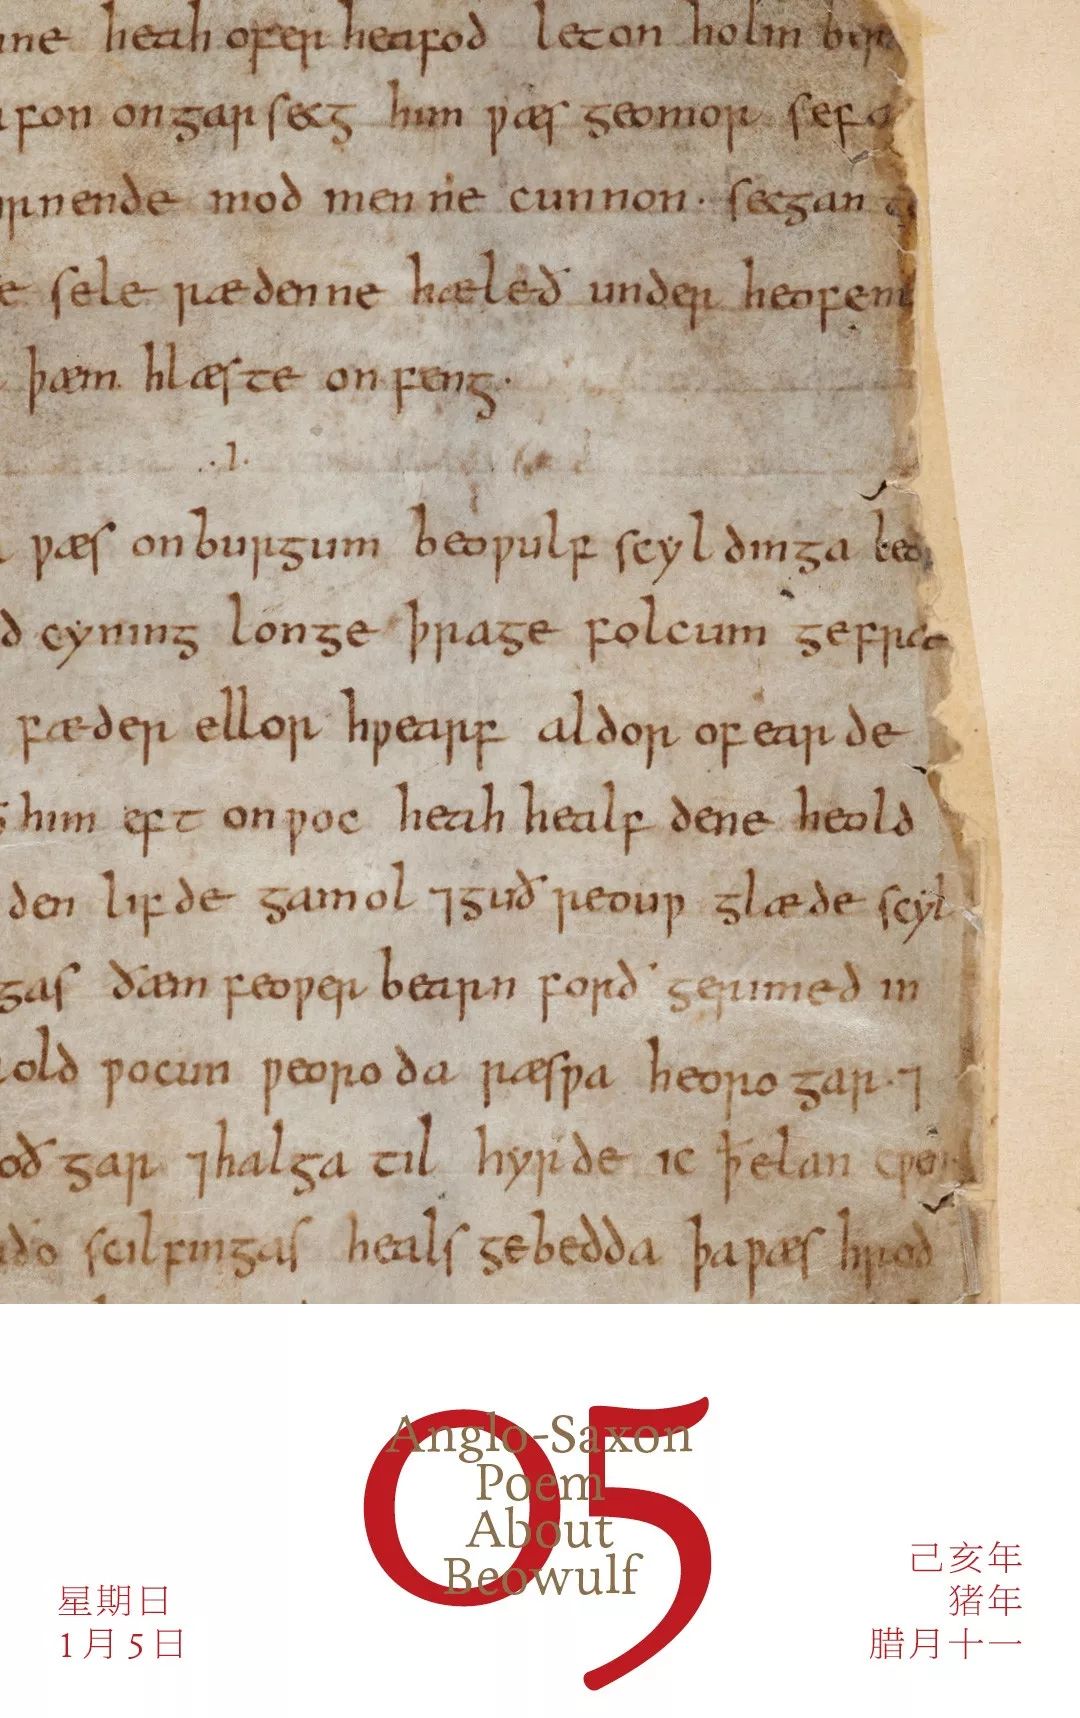 ne heah ofer heafod leton holm
fon on garsecg him ƿæs geomor sefa
rnende mod men ne cunnon· secgan
e sele rædenne hæleð under heofenu
þæm hlæste onfeng·
.I.
ƿæs on burgum beoƿulf scyldinga leo
d cyning longe þrage folcum gefræ
fæder ellor hƿearf aldor of earde
him eft onƿoc heah healf dene heold
den lifde gamol ⁊ guð reouƿ glæde scyl
gas ðæm feoƿer bearn forð gerimed in
old ƿocun ƿeoroda ræsƿa heoro gar·⁊
oð gar ⁊ halga til hyrde ic ꝥ elan cƿen
do scilfingas heals gebedda þa ƿæs hroð
05
Anglo-Saxon
Poem
About
Beowulf
星期日
1月5日
己亥年
猪年
腊月十一